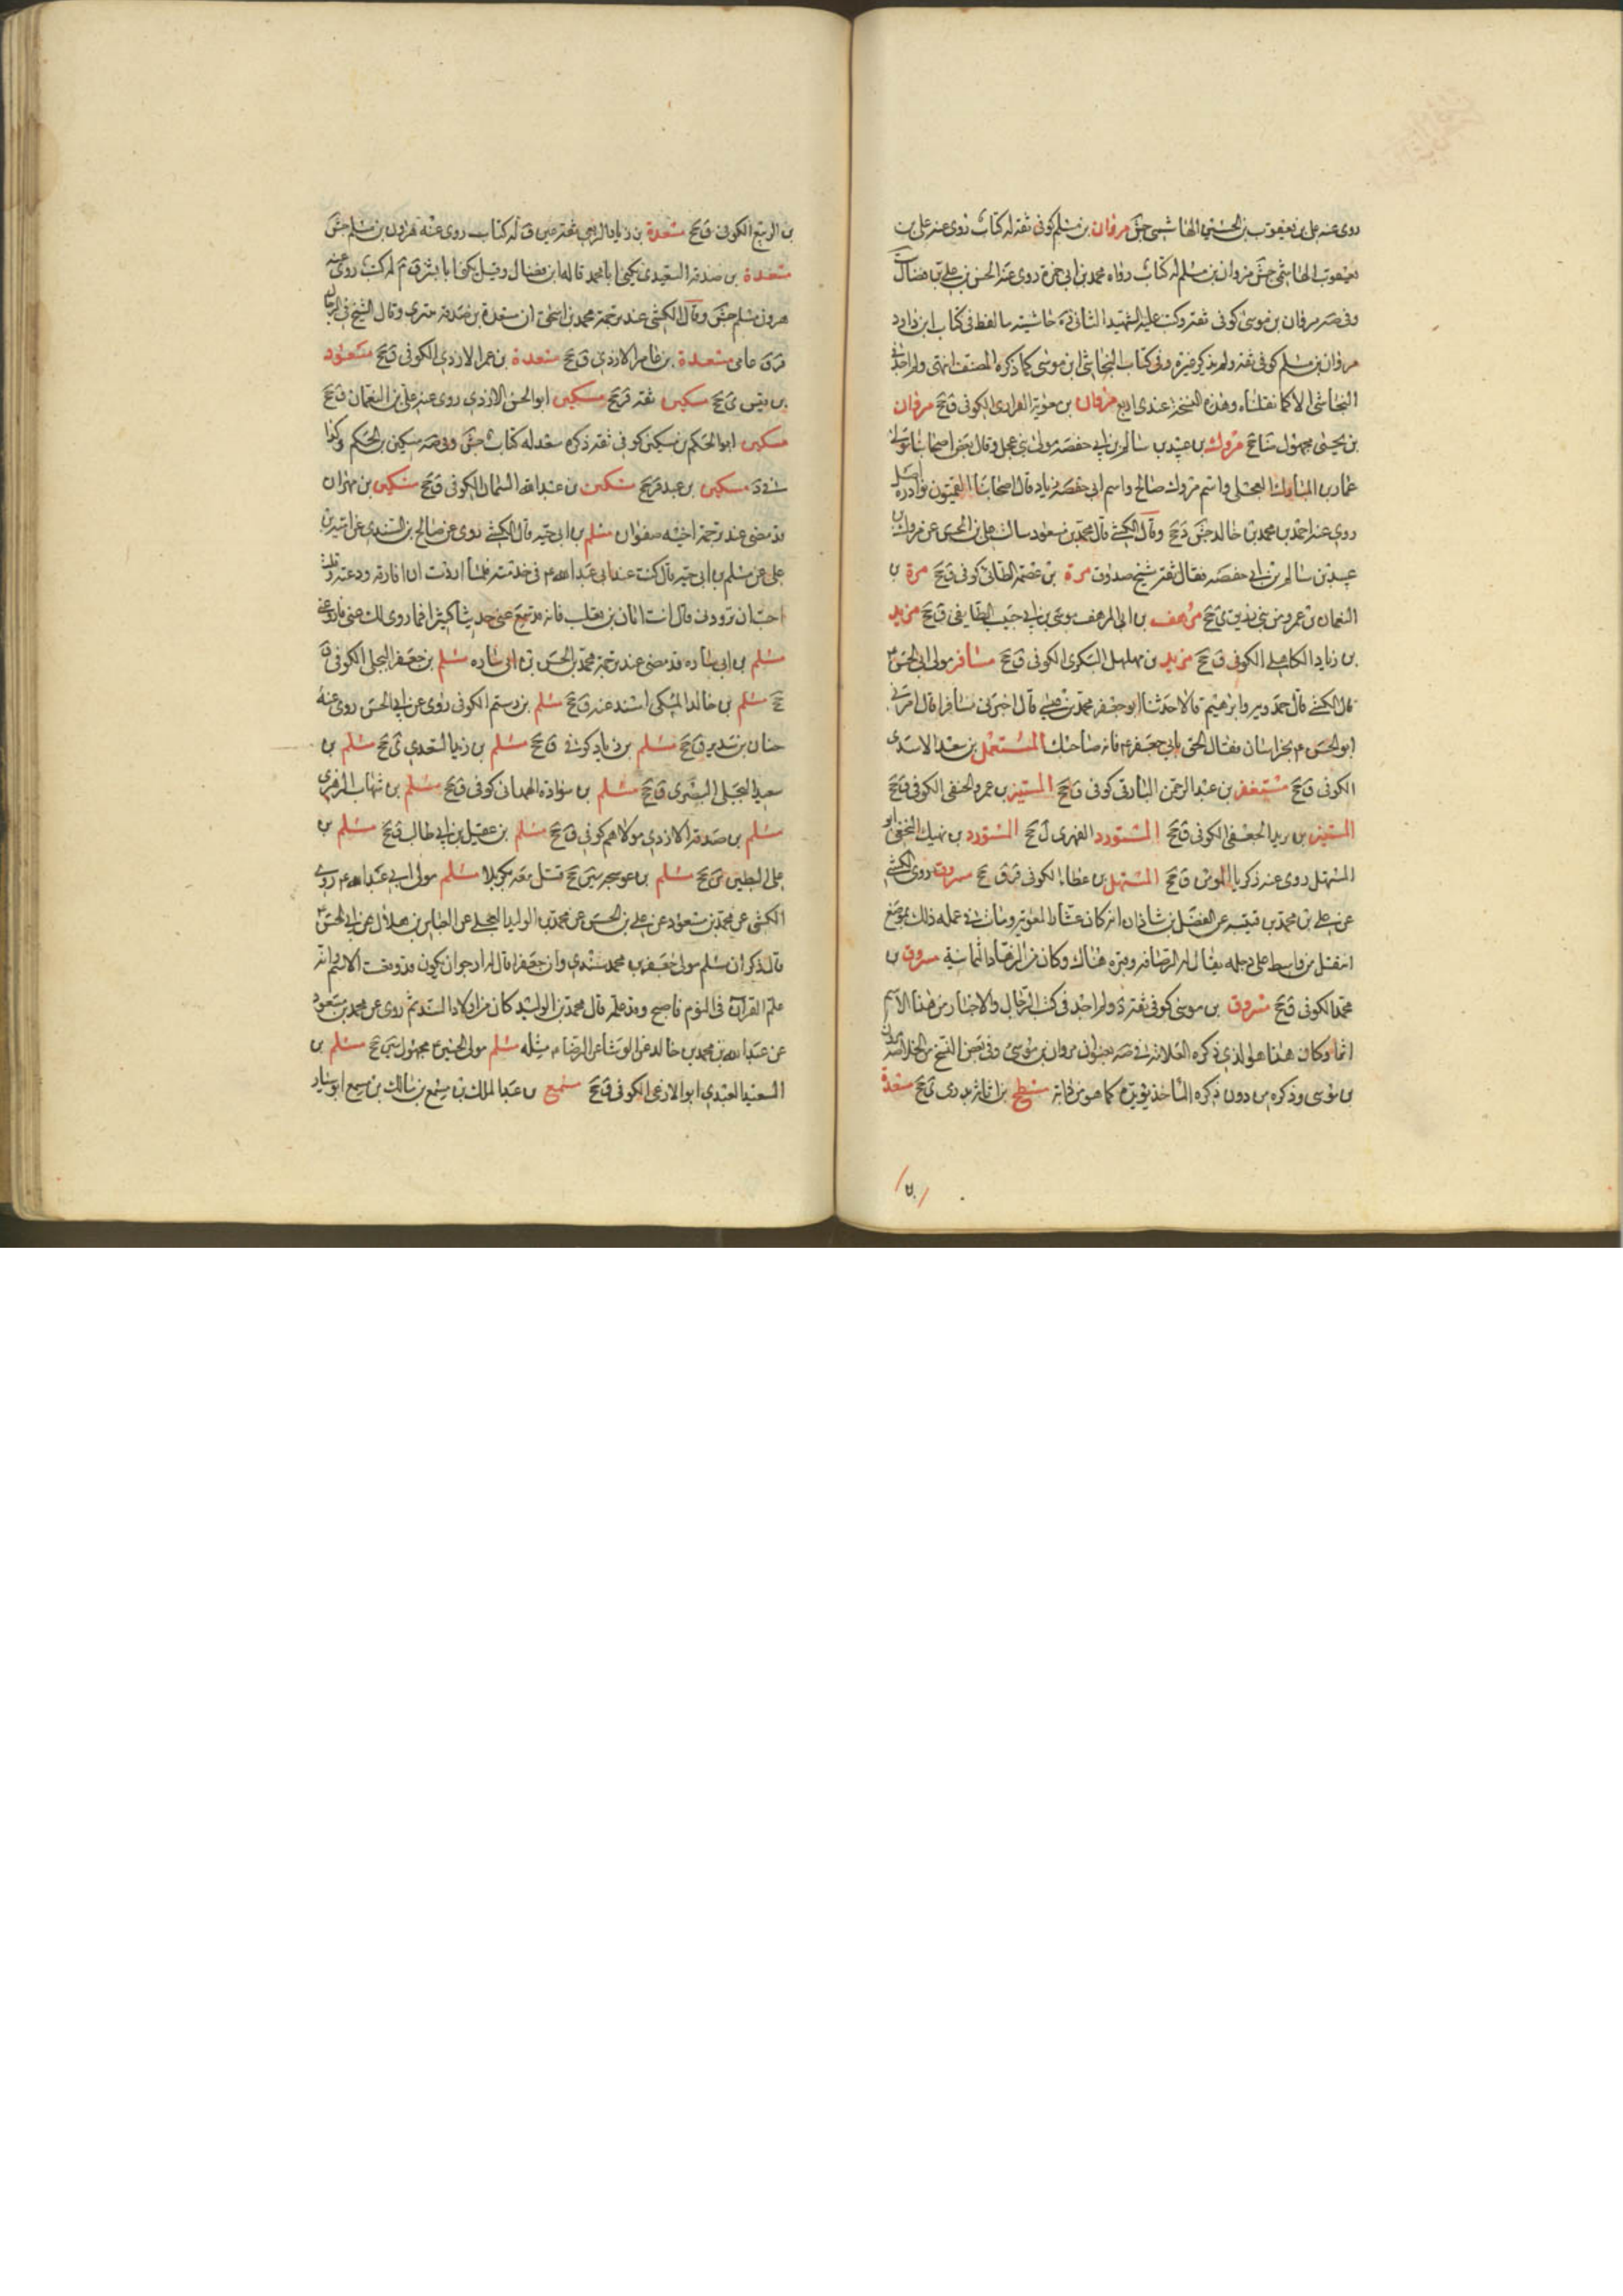 روى عنه على بن يعقوب بن الحسين الهاشمي جش مروان بن مسلم كوفى ثقه له كتاب روى عنه على بن
يعقوب الهاشمي جش مروان بن مسلم له كتاب رواه محمد بن ابى حمزة روى عنه الحسن بن على بن فضال
وفى صه مروان بن موسى كوفى ثقه وكتب عليه الشهيد الثانى حاشيته ما لفظه فى كتاب ابن داود
مروان بن مسلم كوفى ثقه ولم يذكر غيره وفى كتاب النجاشى ابن موسى كما ذكره المصنف انتهى ولم اجد فى
النجاشى الا كما نقلناه وهذه النسخة عندى اربع مروان بن معوية الفزارى الكوفى ق جخ مروان
بن يحيى مجهول ضا جخ مروك بن عبيد بن سالم بن ابى حفصه مولى بنى عجل وقال بعض اصحابنا مولى
عمار بن المبارك العجلى واسم مروك صالح واسم ابى حفصه زياد قال اصحابنا القميون نوادره اصل
روى عنه احمد بن محمد بن خالد جش د جخ وقال الكشى قال محمد بن مسعود سالت على بن الحسن عن مروك بن
عبيد بن سالم بن ابى حفصه فقال ثقه شيخ صدوق مرة بن الطائى كوفى ق جخ مرة بن
النعمان بن عمرو من بنى زريق ى جخ مرهف بن ابى المرهف موسى بن ابى حبيب الطايفى ق جخ مزيد
بن زياد الكاهلى الكوفى ق جخ مزيد بن مهلهل السكرى الكوفى ق جخ مسافر مولى ابى الحسن ع
قال الكشى قال حمدويه وابرهيم قالا حدثنا ابو جعفر محمد بن عيسى قال اخبرنى مسافر قال امرنى
ابو الحسن ع بخراسان فقال الحق بابى جعفر ع فانه صاحبك المستهل بن سعد الاسدى
الكوفى ق جخ مستغفر بن عبد الرحمن البارقى كوفى ق جخ المستنير بن عمرو الحنفى الكوفى ق جخ
المستنير بن يزيد الجعفى الكوفى ق جخ المستورد الفهرى ل جخ المستورد بن نهيك النخعى ابو
المستهل روى عنه زكريا المومن ق جخ المستهل بن عطاء الكوفى ق جخ مسروق روى الكشى
عن على بن محمد بن قتيبه عن الفضل بن شاذان انه كان عشارا لمعوية ومات فى عمله ذلك بموضع
اسفل من واسط على دجله يقال له الرصافه وقبره هناك وكان من الزهاد الثمانية مسروق بن
محمد الكوفى ق جخ مسروق بن موسى كوفى ثقه د ولم اجد فى كتب الرجال والاخبار من هذا الاسم
اثما وكان هذا هو الذى ذكره العلامة فى صه بعنوان مروان بن موسى وفى بعض النسخ من الخلاصه
بن موسى وذكره من دون ذكره الماخذ كما هو من دابه مسطح بن اثاثه بدرى ى جخ مسعدة
بن الربيع الكوفى ق جخ مسعدة بن زياد الربعى ثقه عين ق له كتاب روى عنه هرون بن مسلم جش
مسعدة بن صدقه العبدى يكنى ابا محمد قاله ابن فضال وقيل يكنى ابا بشر ق م له كتب روى عنه
هرون بن مسلم جش وقال الكشى عند ترجمة محمد بن اسحق ان مسعدة بن صدقه بترى وقال الشيخ فى الرجال
ق عامى مسعدة بن عامر الازدى ق جخ مسعدة بن عمر الازدى الكوفى ق جخ مسعود
بن قيس ى جخ مسكين ثقه جخ مسكين ابو الحسن الازدى روى عنه على بن النعمان ق جخ
مسكين ابو الحكم بن مسكين كوفى ثقه ذكره سعد له كتاب جش وفى صه مسكين بن الحكم وكذا
فى د مسكين بن عبد جخ مسكين بن عبد الله السمان الكوفى ق جخ مسكين بن مهران
قد مضى عند ترجمة اخيه صفوان مسلم بن ابى حيه قال الكشى روى عن صالح بن السندى عن امية بن
على عن مسلم بن ابى حيه قال كنت عند ابى عبد الله ع فى خدمته فلما اردت ان افارقه ودعته وقلت
احب ان تزودنى قال ائت ابان بن تغلب فانه قد سمع منى حديثا كثيرا فما روى لك عنى فاروه عنى
مسلم بن ابى ساره قد مضى عند ترجمة محمد بن الحسن بن ابى ساره مسلم بن جعفر البجلى الكوفى ق
جخ مسلم بن خالد المكى اسند عنه ق جخ مسلم بن رستم الكوفى روى عن ابى الحسن روى عنه
حنان بن سدير ق جخ مسلم بن زياد كوفى ق جخ مسلم بن زيد السعدى ى جخ مسلم بن
سعيد البجلى البصرى ق جخ مسلم بن سواده الهمدانى كوفى ق جخ مسلم بن شهاب الزهرى
مسلم بن صدقه الازدى مولاهم كوفى ق جخ مسلم بن عقيل بن ابى طالب جخ مسلم بن
على البطين جخ مسلم بن عوسجه سين جخ قتل معه بكربلا مسلم مولى ابى عبد الله ع روى
الكشى عن محمد بن مسعود عن على بن الحسن عن محمد بن الوليد البجلى عن العباس بن هلال عن ابى الحسن ع
قال ذكر ان مسلم مولى جعفر بن محمد سندى وان جعفرا قال له ارجو ان يكون قد وفقت الاسم وانه
علم القرآن فى النوم فاصبح وقد علمه قال محمد بن الوليد كان من اولاد السند ثم روى عن محمد بن مسعود
عن عبد الله بن محمد بن خالد عن الوشا عن الرضا ع مثله مسلم مولى الحسين ع مجهول سين جخ مسلم بن
السعيد العبدى ابو الكوفى ق جخ مسمع بن عبد الملك بن مسمع بن مالك بن مسمع ابو سيار